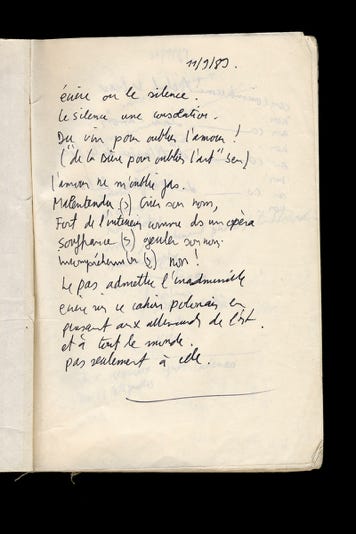 11/9/89.
écrire ou le silence.
Le silence une consolation.
Du vin pour oublier l'amour !
("de la bière pour oublier l'art" Ben)
L'amour ne m'oublie pas.
Malentendu(s) Crier son nom,
Fort de l'intérieur comme ds un opéra
Souffrance(s) gueuler son nom
Incompréhension(s) non !
Ne pas admettre l'inadmissible
écrire sur ce cahier polonais en
pensant aux allemands de l'est.
et à tout le monde.
pas seulement à elle.